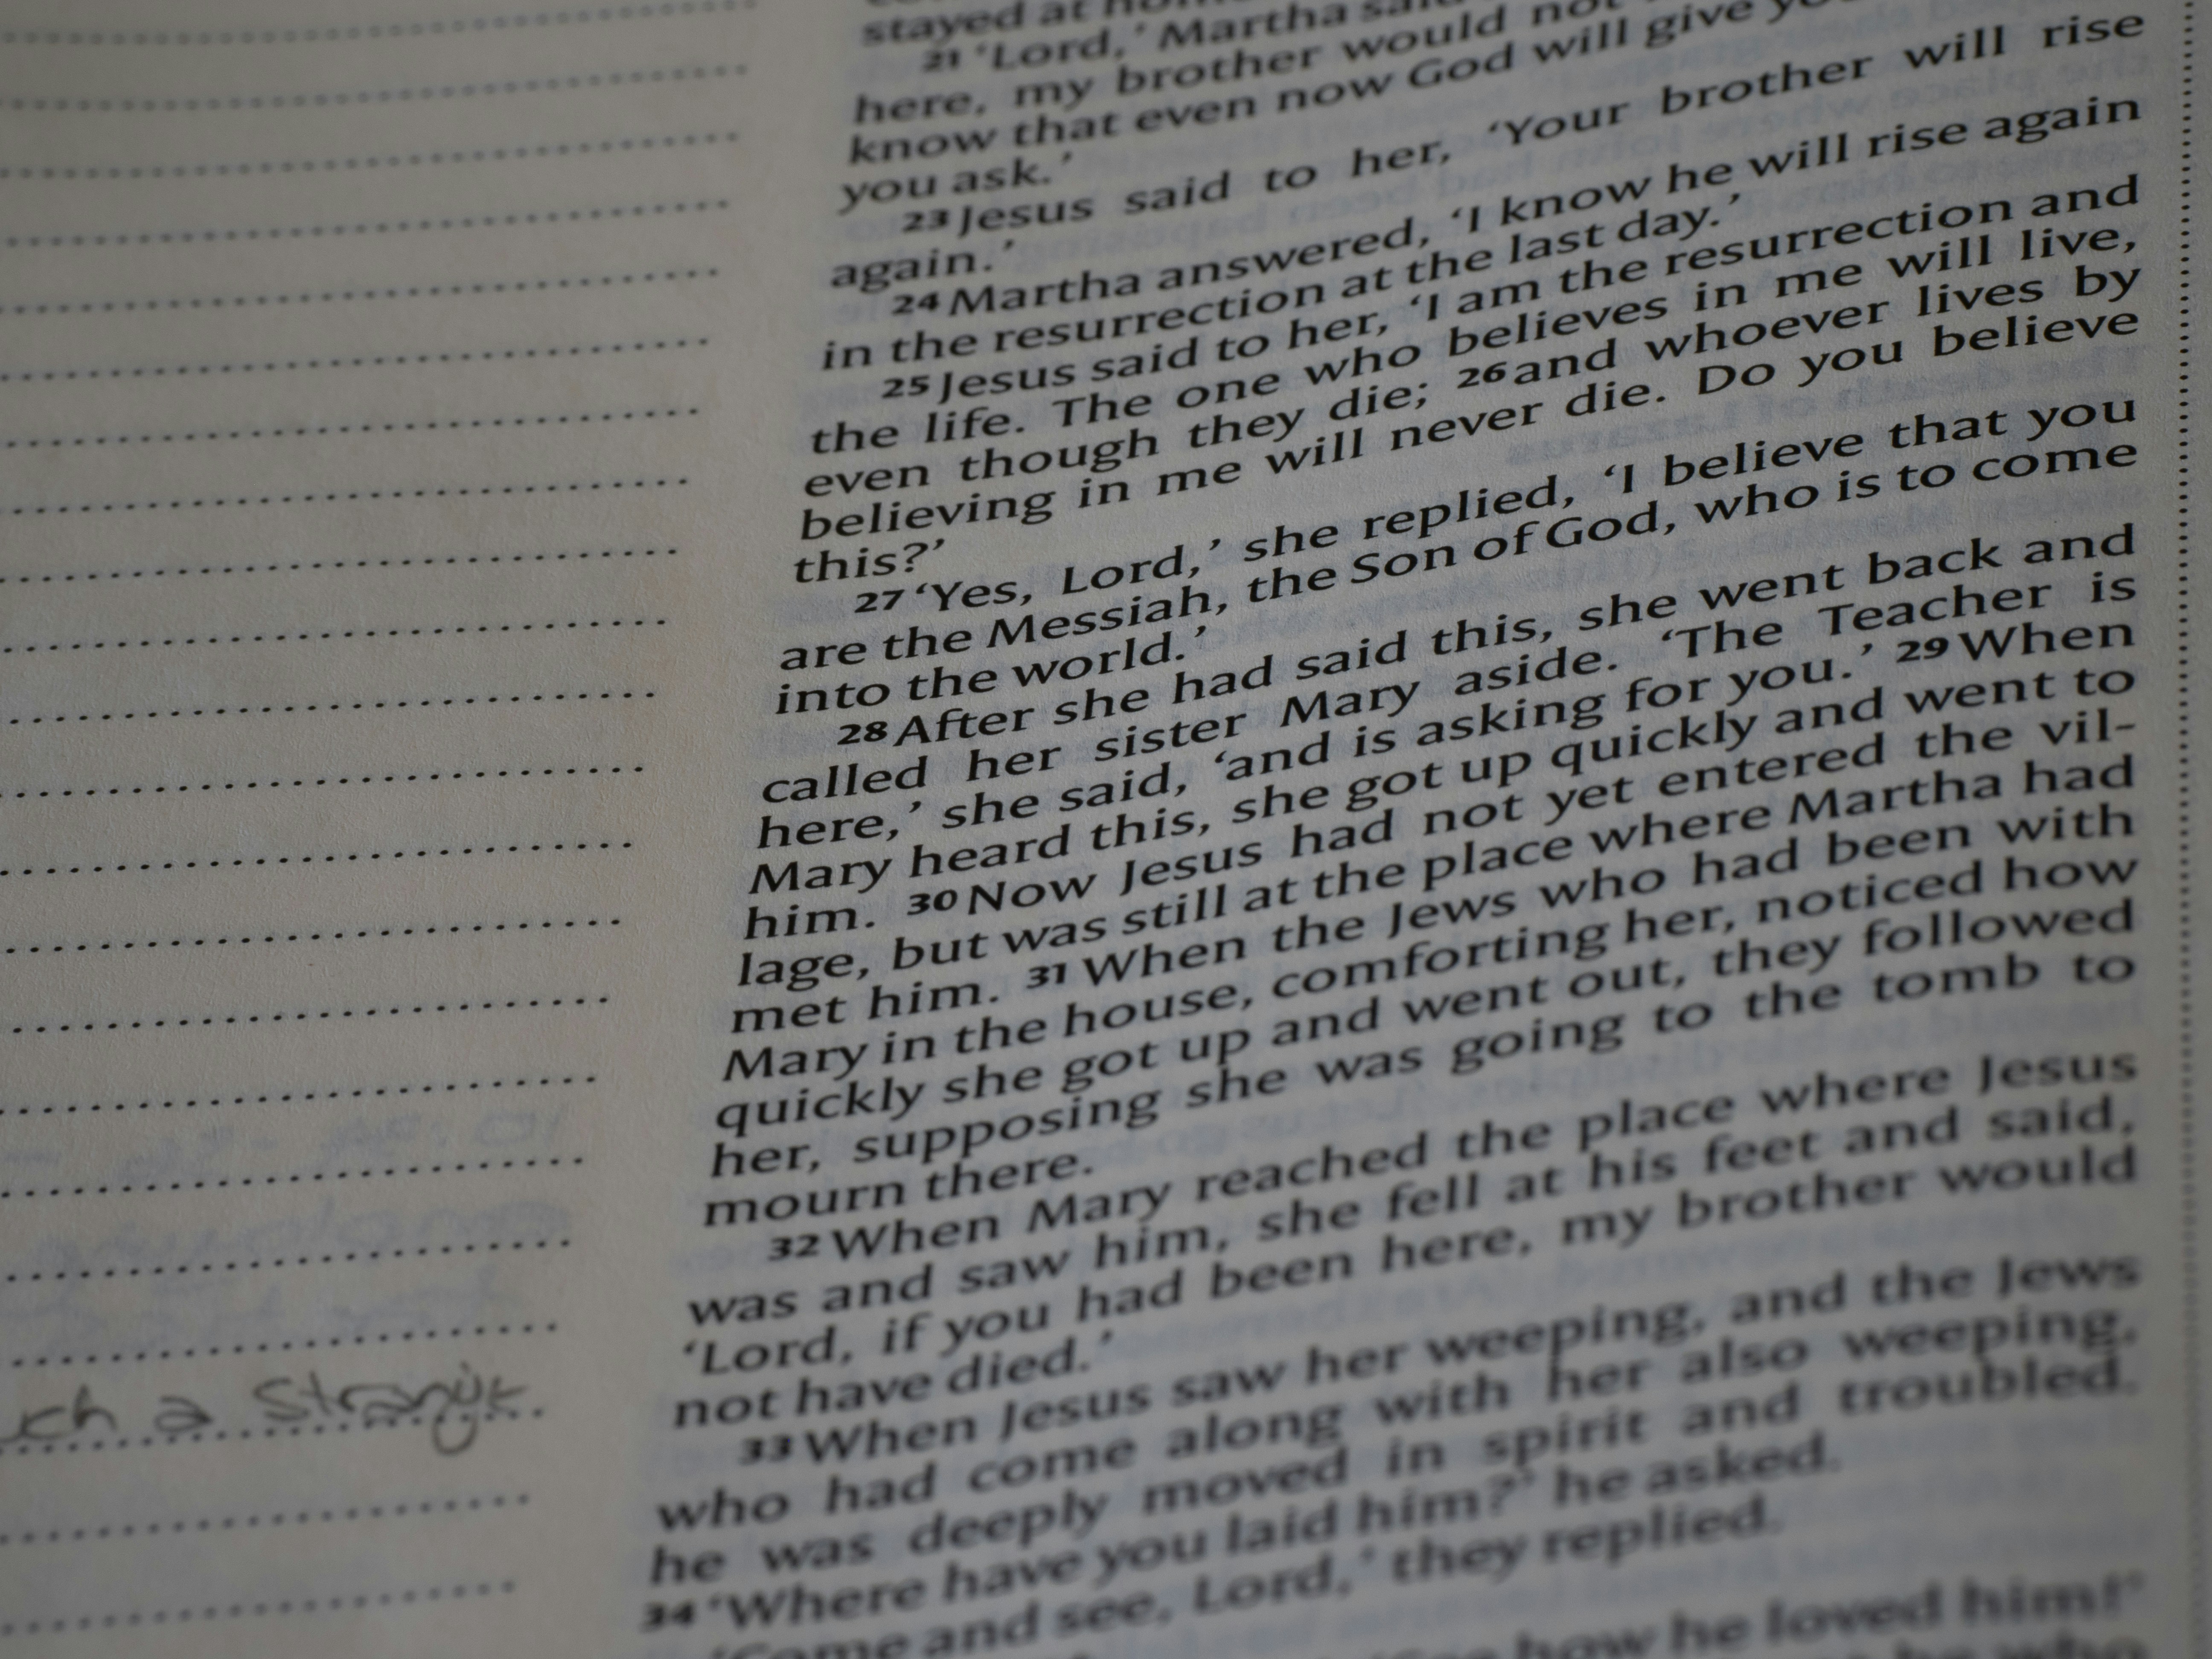 stayed at
21 'Lord,' Martha
here, my brother would not
know that even now God will give
you ask.'
23 Jesus said to her, 'Your brother will rise
again.'
24 Martha answered, 'I know he will rise again
in the resurrection at the last day.'
25 Jesus said to her, 'I am the resurrection and
the life. The one who believes in me will live,
even though they die; 26 and whoever lives by
believing in me will never die. Do you believe
this?'
27 'Yes, Lord,' she replied, 'I believe that you
are the Messiah, the Son of God, who is to come
into the world.'
28 After she had said this, she went back and
called her sister Mary aside. 'The Teacher is
here,' she said, 'and is asking for you.' 29 When
Mary heard this, she got up quickly and went to
him. 30 Now Jesus had not yet entered the vil-
lage, but was still at the place where Martha had
met him. 31 When the Jews who had been with
Mary in the house, comforting her, noticed how
quickly she got up and went out, they followed
her, supposing she was going to the tomb to
mourn there.
32 When Mary reached the place where Jesus
was and saw him, she fell at his feet and said,
'Lord, if you had been here, my brother would
not have died.'
33 When Jesus saw her weeping, and the Jews
who had come along with her also weeping,
he was deeply moved in spirit and troubled.
34 'Where have you laid him?' he asked.
'Come and see, Lord,' they replied.
how he loved him!'
he who
a